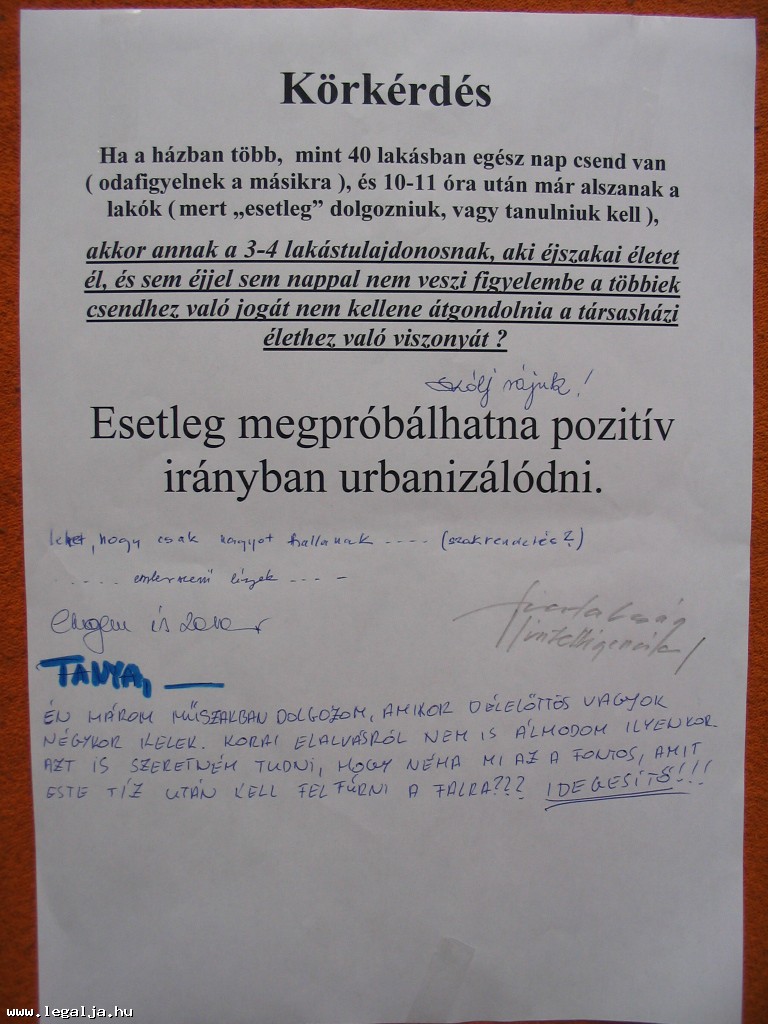 Körkérdés
Ha a házban több, mint 40 lakásban egész nap csend van
( odafigyelnek a másikra ), és 10-11 óra után már alszanak a
lakók ( mert „esetleg” dolgozniuk, vagy tanulniuk kell ),
akkor annak a 3-4 lakástulajdonosnak, aki éjszakai életet
él, és sem éjjel sem nappal nem veszi figyelembe a többiek
csendhez való jogát nem kellene átgondolnia a társasházi
élethez való viszonyát ?
szólj rájuk!
Esetleg megpróbálhatna pozitív
irányban urbanizálódni.
lehet, hogy csak nagyot hallanak .... (szakrendelés?)
Engem is zavar
intelligencia!
TANYA,
ÉN HÁROM MŰSZAKBAN DOLGOZOM, AMIKOR DÉLELŐTTÖS VAGYOK
NÉGYKOR KELEK. KORAI ELALVÁSRÓL NEM IS ÁLMODOM ILYENKOR
AZT IS SZERETNÉM TUDNI, HOGY NÉHA MI AZ A FONTOS, AMIT
ESTE TÍZ UTÁN KELL FELFÚRNI A FALRA??? IDEGESÍTŐ!!!!
www.legalja.hu